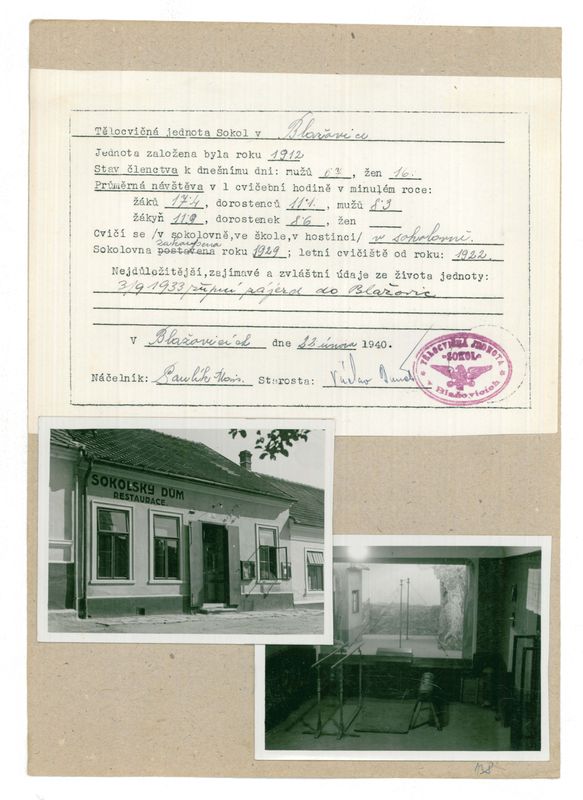 Tělocvičná jednota Sokol v Blažovice
Jednota založena byla roku 1912
Stav členctva k dnešnímu dni: mužů, žen 16.
Průměrná návštěva v 1 cvičební hodině v minulém roce:
žáků 17·4, dorostenců 11·1, mužů 8·3
žákyň 11·9, dorostenek 8·6, žen
Cvičí se /v sokolovně,ve škole,v hostinci/ v sokolovně.
zakoupena
Sokolovna postavena roku 1929; letní cvičiště od roku: 1922.
Nejdůležitější,zajímavé a zvláštní údaje ze života jednoty:
3/9 1933 župní zájezd do Blažovic
V Blažovicích dne 22 února 1940.
Náčelník: Pavlík Starosta: Václav
TĚLOCVIČNÁ JEDNOTA
"SOKOL"
v Blažovicích
SOKOLSKÝ DŮM
RESTAURACE
138